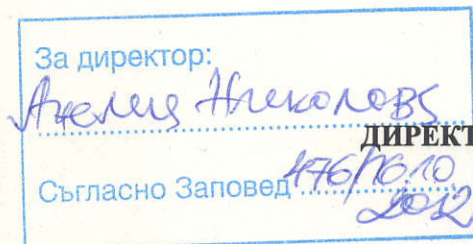 За директор:
Анелия Николова
ДИРЕКТ
Съгласно Заповед 476/16.10
2012